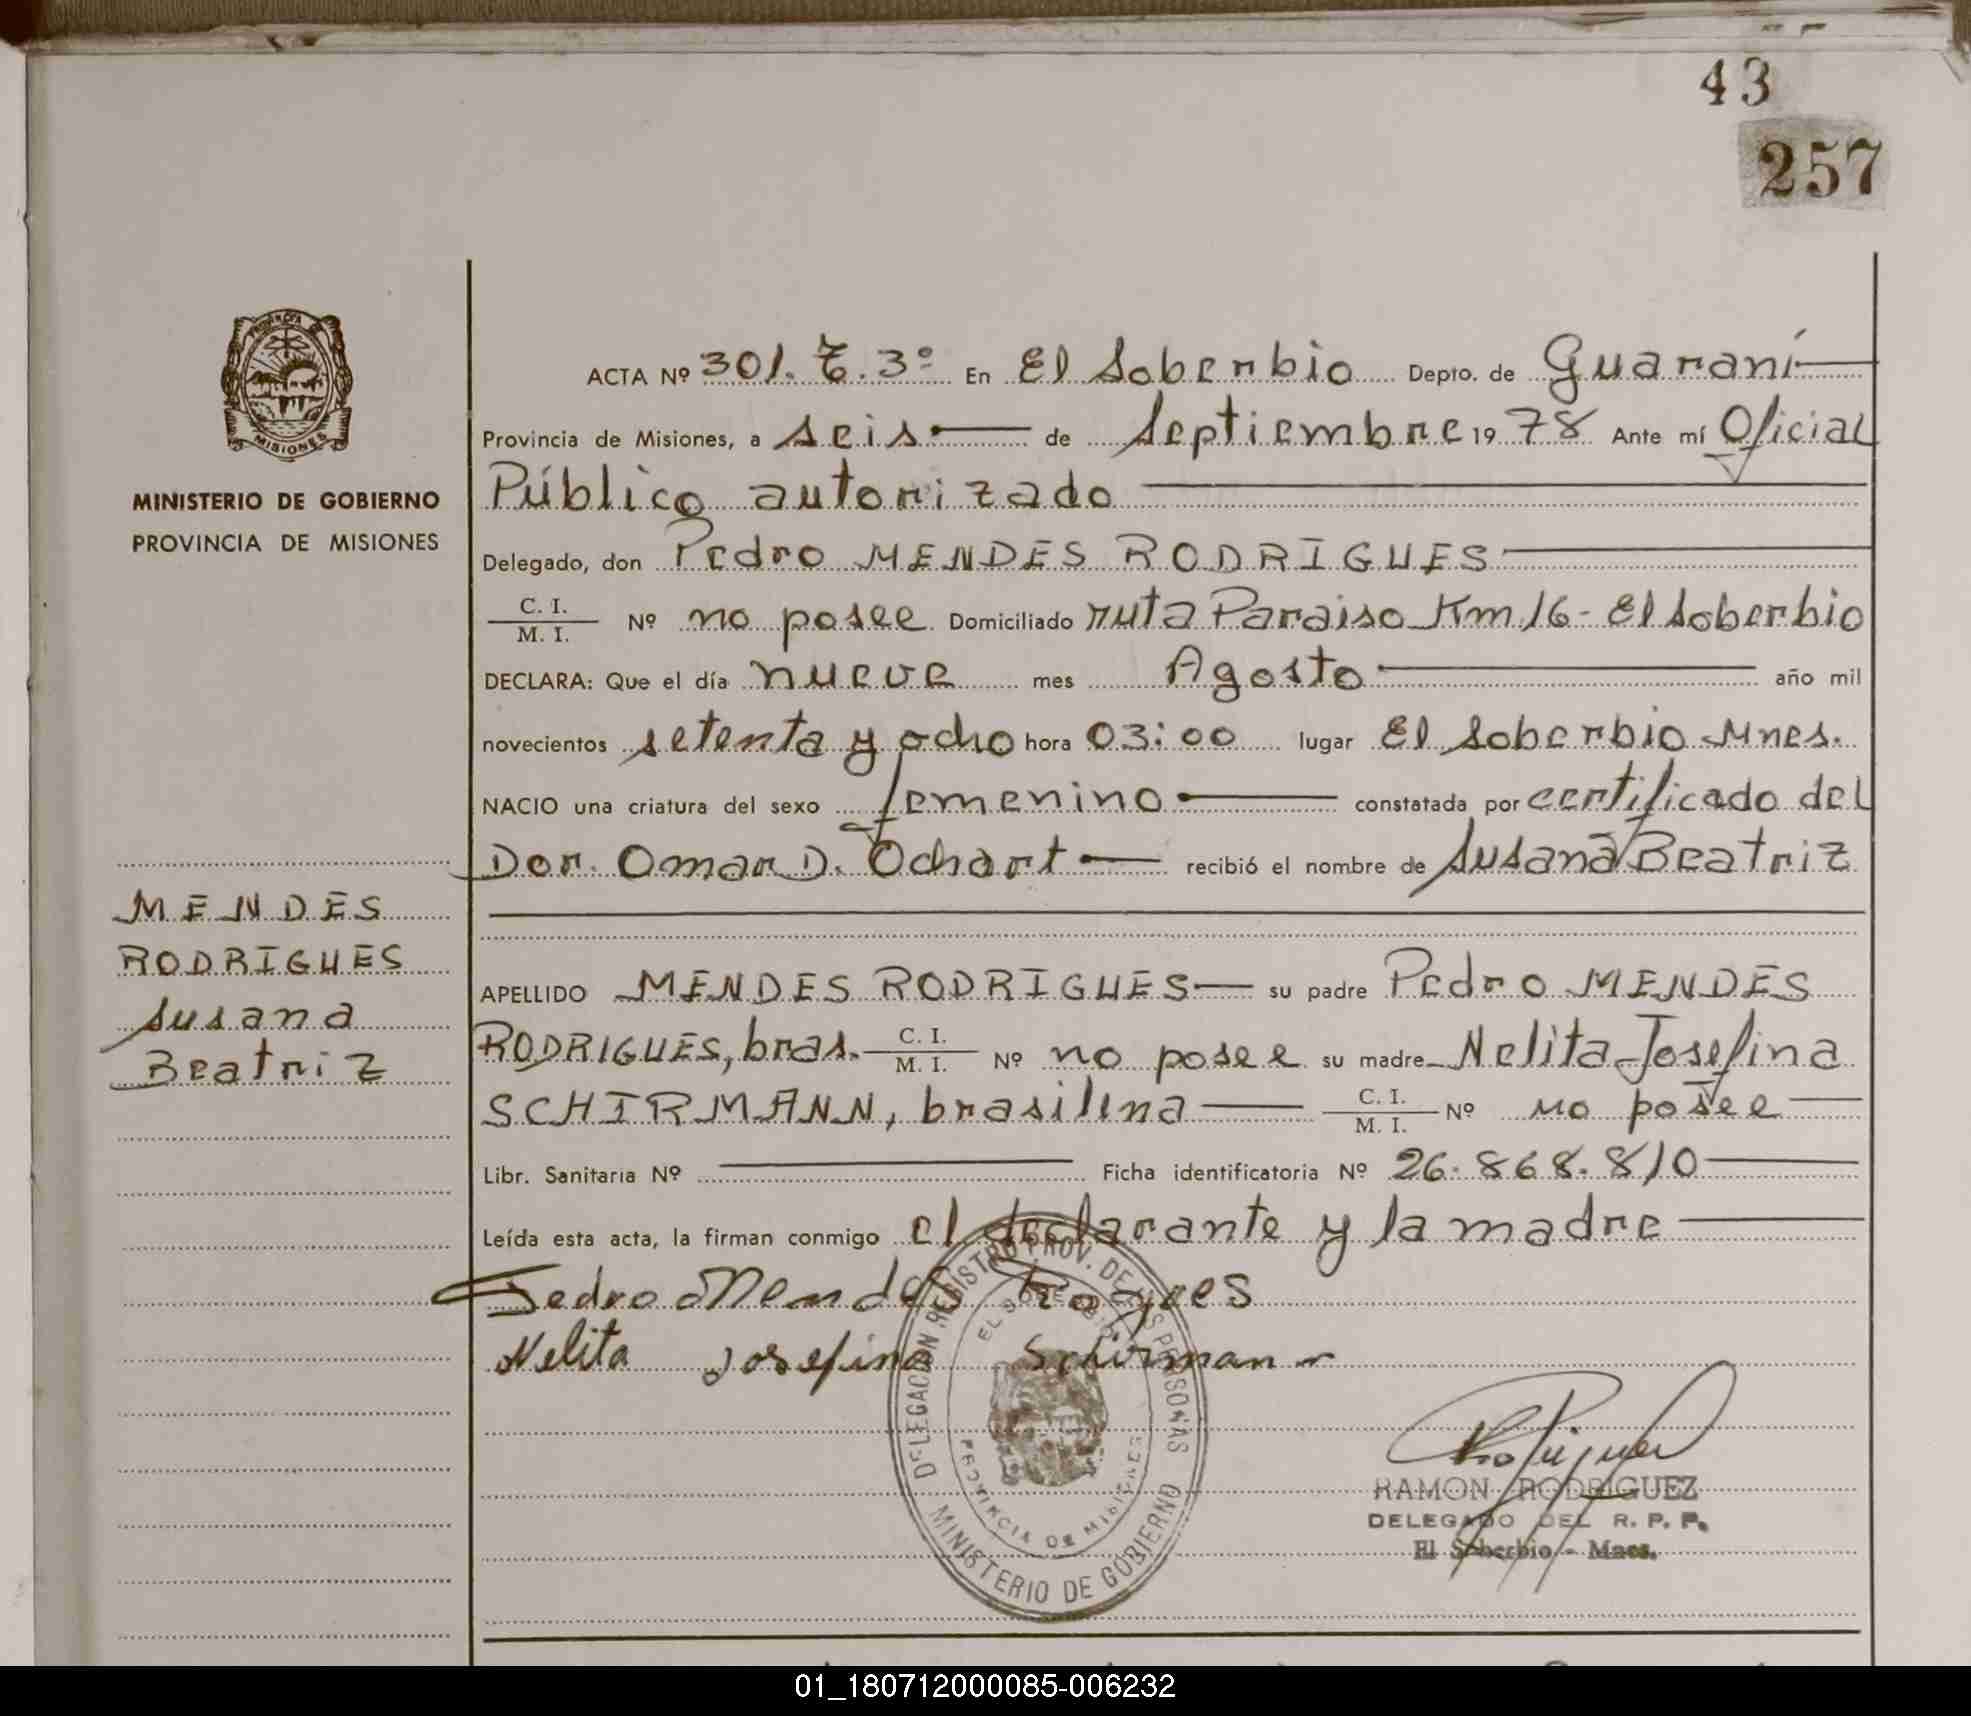 43
257
PROVINCIA DE
MISIONES
MINISTERIO DE GOBIERNO
PROVINCIA DE MISIONES
MENDES
RODRIGUES
Susana
Beatriz
ACTA Nº 301. T. 3º En El Soberbio Depto. de Guaraní
Provincia de Misiones, a seis de Septiembre 19 78 Ante mí Oficial
Público autorizado
Delegado, don Pedro MENDES RODRIGUES
C. I.
M. I. Nº no posee Domiciliado ruta Paraiso Km 16 - El Soberbio
DECLARA: Que el día nueve mes Agosto año mil
novecientos setenta y ocho hora 03:00 lugar El Soberbio Mnes.
NACIO una criatura del sexo femenino constatada por certificado del
Dor. Omar D. Ochart recibió el nombre de Susana Beatriz
APELLIDO MENDES RODRIGUES su padre Pedro MENDES
RODRIGUES, bras. C. I. M. I. Nº no posee su madre Nelita Josefina
SCHIRMANN, brasilena C. I. M. I. Nº no posee
Libr. Sanitaria Nº Ficha identificatoria Nº 26.868.810
Leída esta acta, la firman conmigo el declarante y la madre
Pedro Mendes
Nelita Josefina Schirman
DELEGACION REGISTRO PROV. DE LAS PERSONAS
EL SOBERBIO
PROVINCIA DE MISIONES
MINISTERIO DE GOBIERNO
RAMON RODRIGUEZ
DELEGADO DEL R. P. P.
El Soberbio - Mnes.
01_180712000085-006232